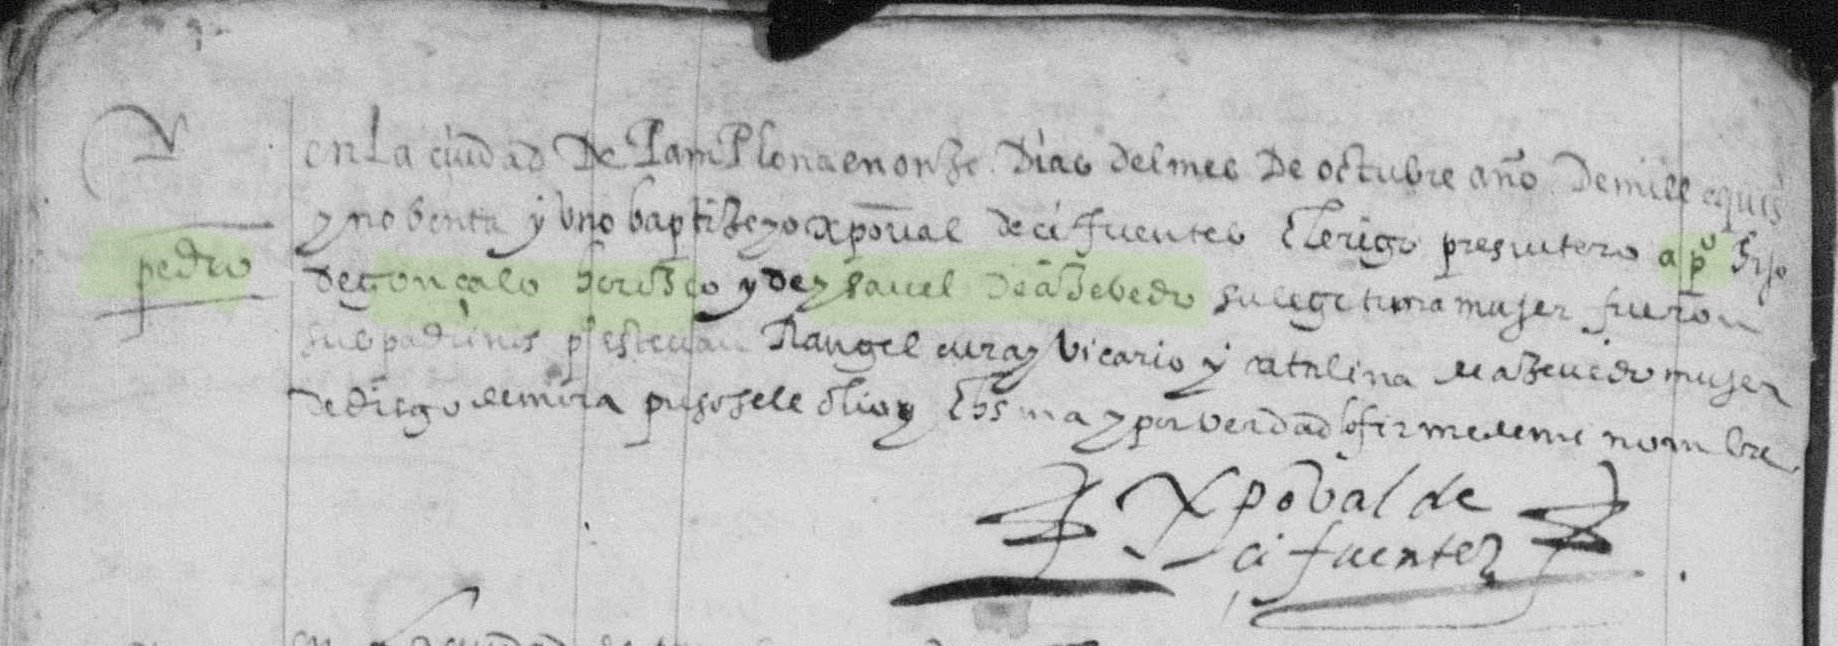 en La ciudad De Pam Plona en onze Dias del mes De octubre año De mill e quis
y nobenta y Uno baptize yo xpoual de ci fuentes Clerigo presuitero a po hijo
pedro
de gonçalo y de ysauel de azebedo su legitima mujer fueron
sus padrinos pe esteuan Rangel cura y Vicario y catalina de azeuedo mujer
de diego de mira pusosele olio y Chrisma y por verdad lo firme de mi nombre
Xpoual de
ci fuentes